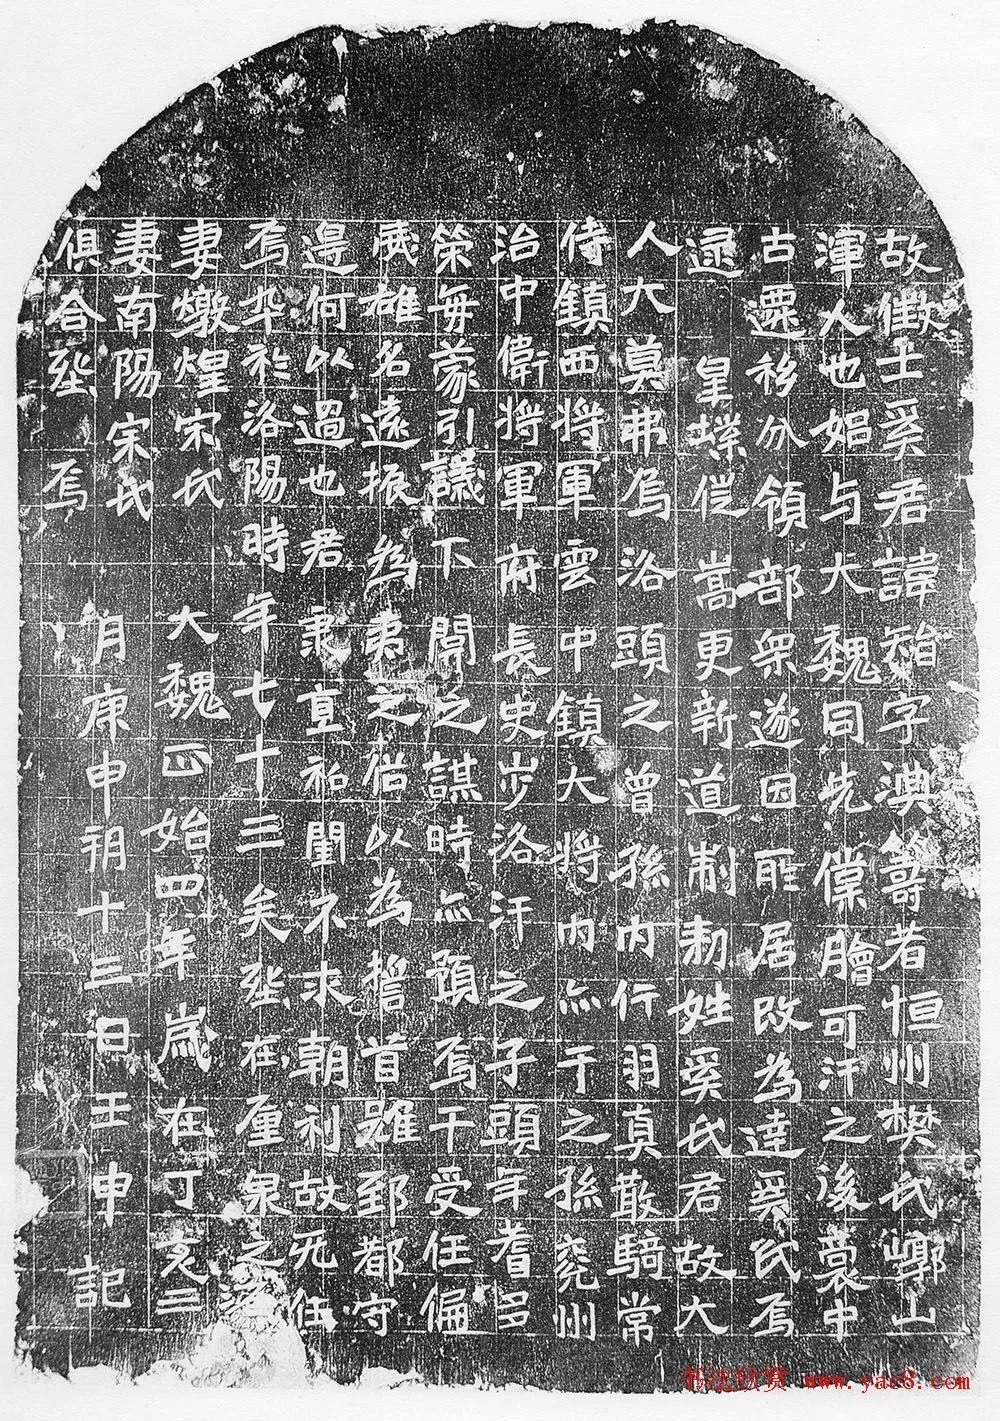 故徵士奚君諱智字淟籌者恒州樊氏崞山
渾人也始与大魏同先僕膾可汗之後裔中
古遷移分領部眾遂因所居改為達奚氏焉
逮 皇業徙嵩更新道制勑姓奚氏君故大
人大莫弗烏洛頭之曾孫內行羽真散騎常
侍鎮西將軍雲中鎮大將內亦干之孫兗州
治中衛將軍府長史步洛汗之子頭年耆多
策每蒙引議下關之謀時亦預焉干受任偏
威雄名遠振為夷之俗以為誓首雖郅都守
邊何以過也君秉直私閨不求朝利故无任
焉卒於洛陽時年七十三矣葬在廛泉之源
妻燉煌宋氏 大魏正始四年歲在丁亥三
妻南陽宗氏 月庚申朔十三日壬申記
俱合葬焉
书法欣赏 www.yac8.com